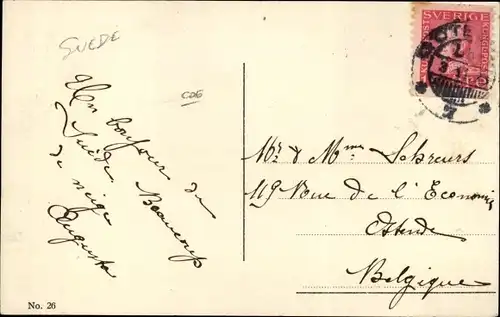 SUEDE
CDE
Un bonjour de
Suède. Beaucoup
de neige
Augusta
No. 26
SVERIGE
Mr & Mme Schreurs
49 Rue de l'Economie
Ostende
Belgique